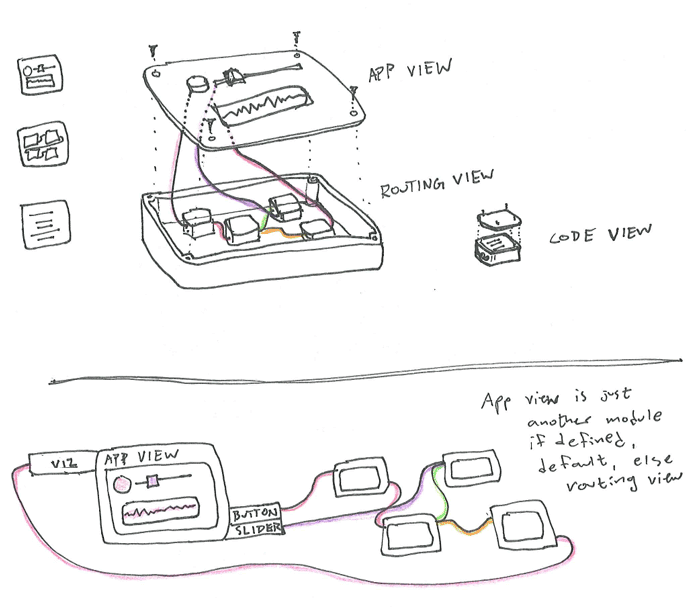 APP VIEW
ROUTING VIEW
CODE VIEW
App view is just
another module
if defined,
default, else
routing view
VIZ
APP VIEW
BUTTON
SLIDER